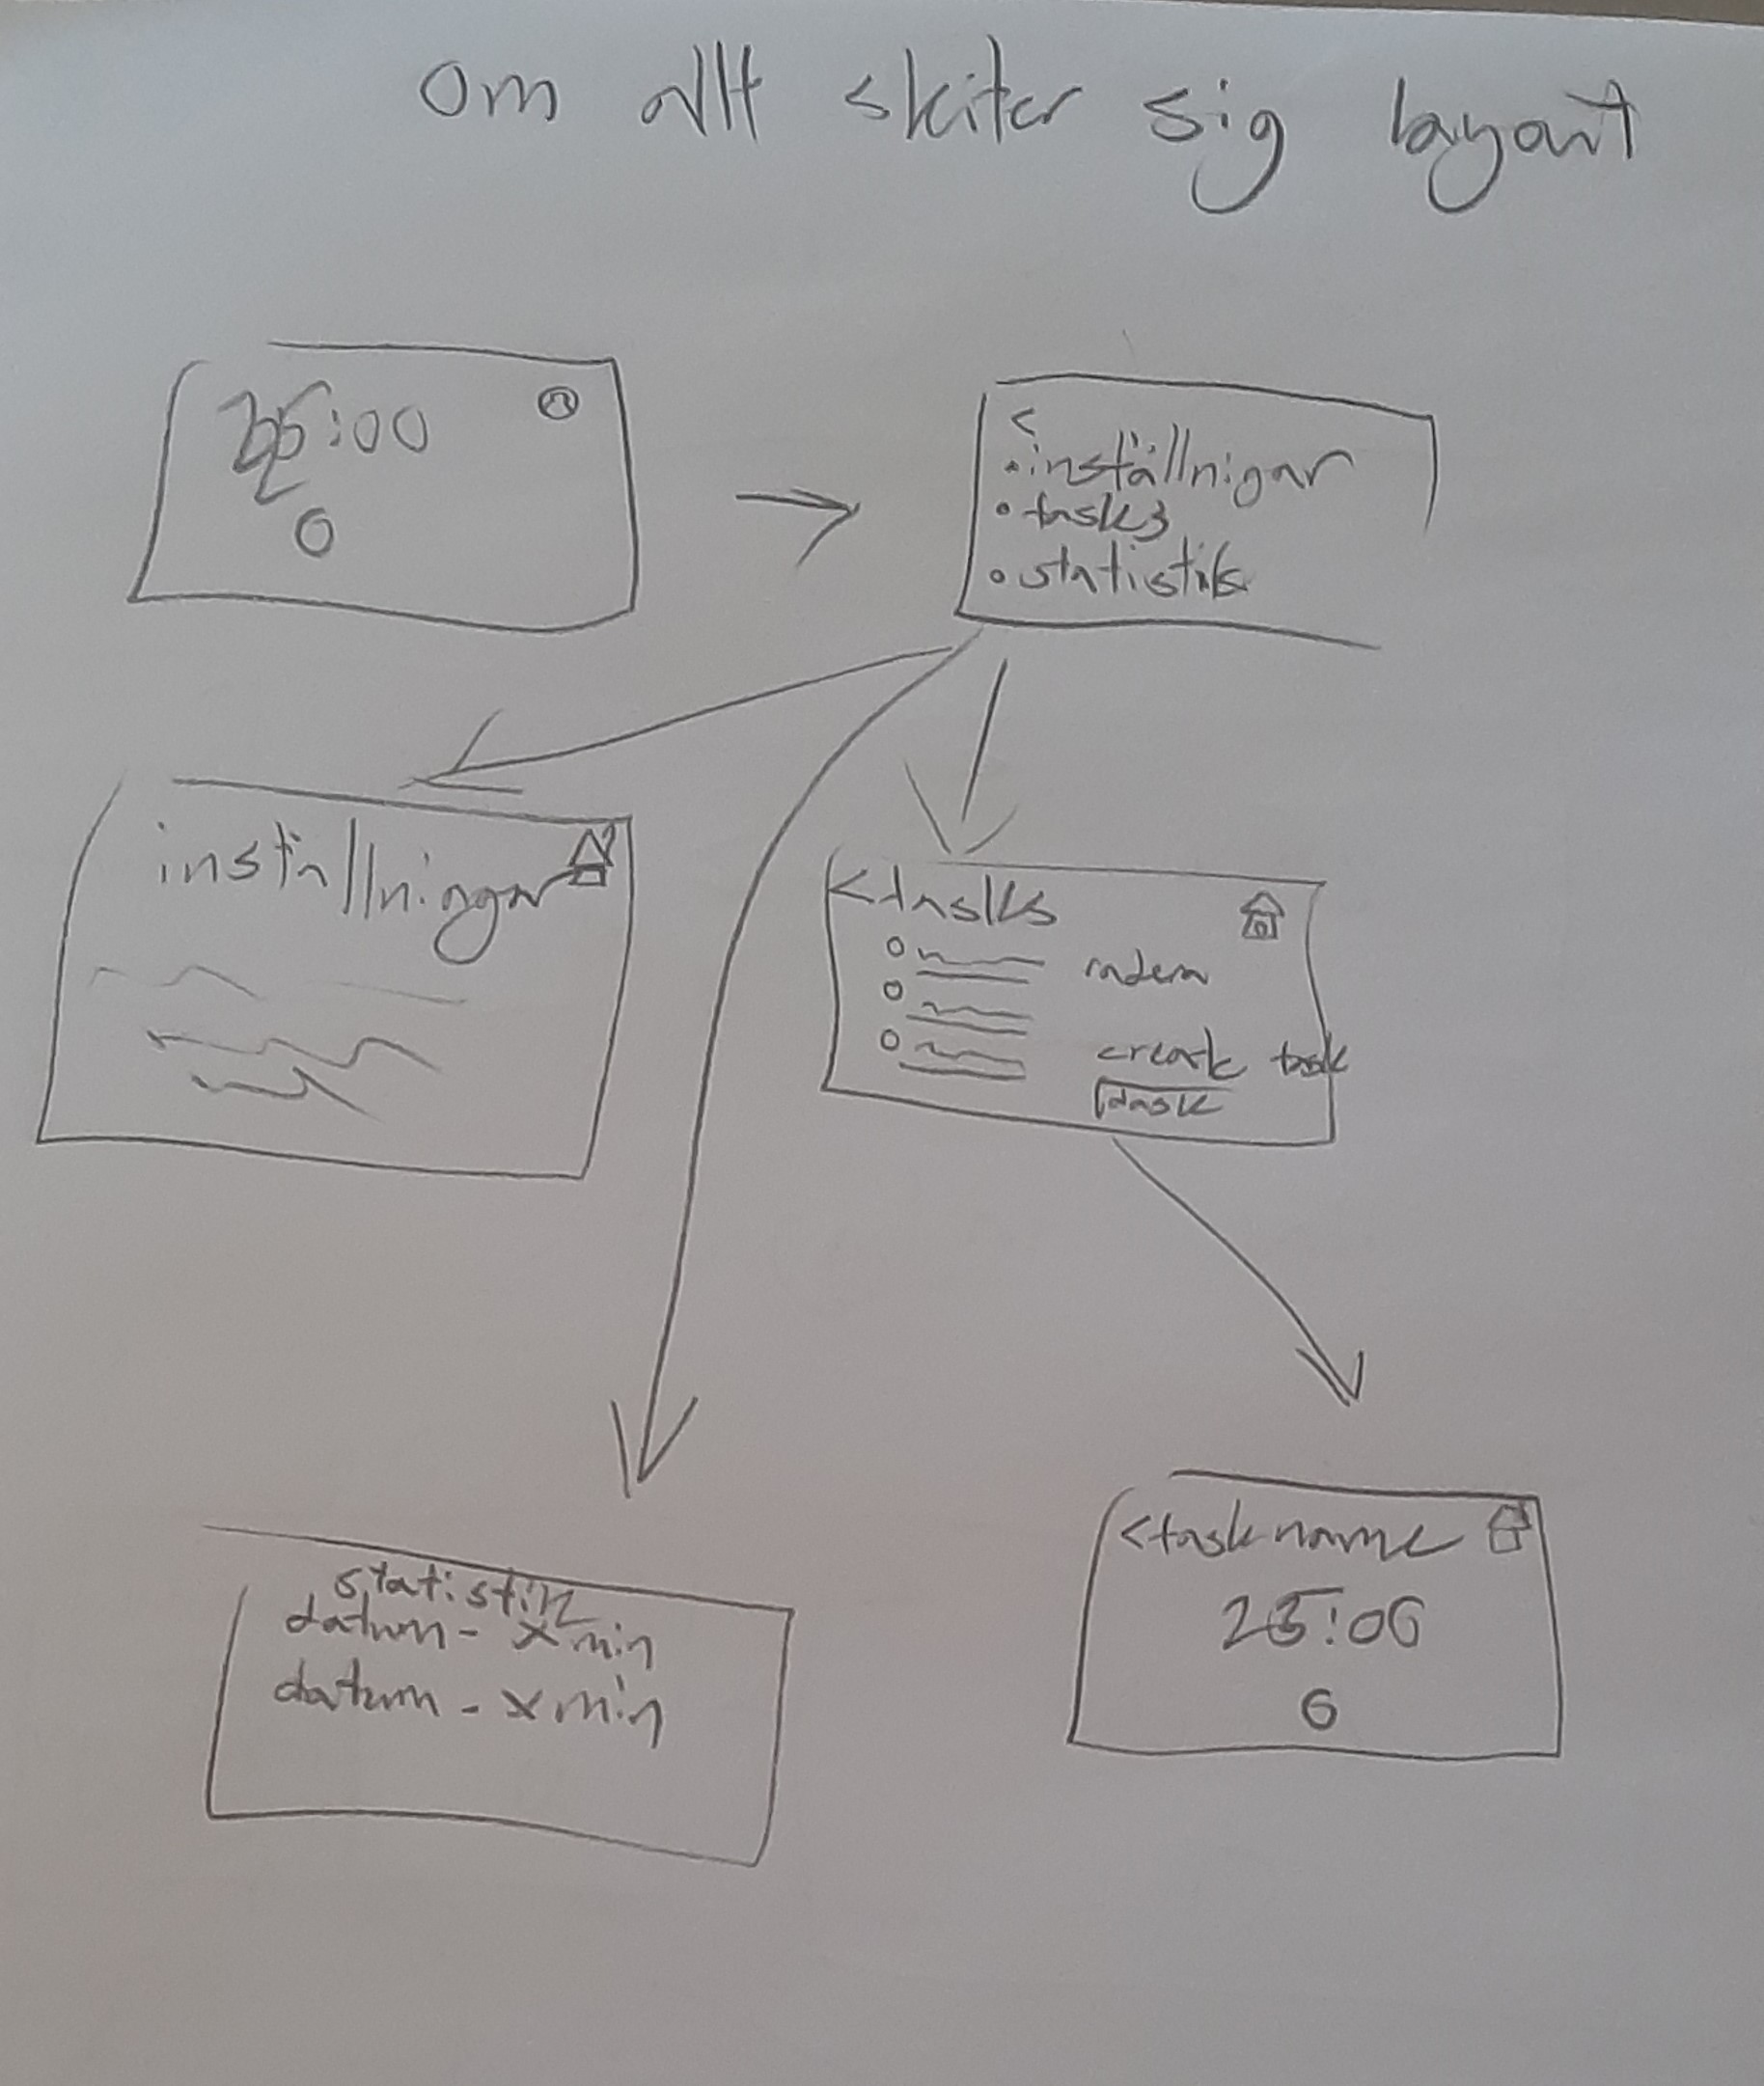 om allt skiter sig layout
25:00
<
• inställnigar
• tasks
• statistik
inställningar
<tasks
radera
create task
task
<taskname
25:00
statistik
datum - x min
datum - x min